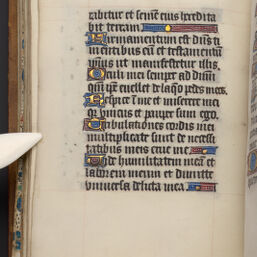 rabitur et semen eius heredita
bit terram
Firmamentum est dns ti
mentibus eu et testamentu
ipsius ut manifestetur illis
Oculi mei semper ad dnm
qm ipe euellet de laqo pedes meos
Respice i me et miserere mei
qr unicus et pauper sum ego
Tribulationes cordis mei
multiplicate sunt de necessi
tatibus meis erue me
Vide humilitatem mea et
laborem meum et dimitte
vniuersa delicta mea